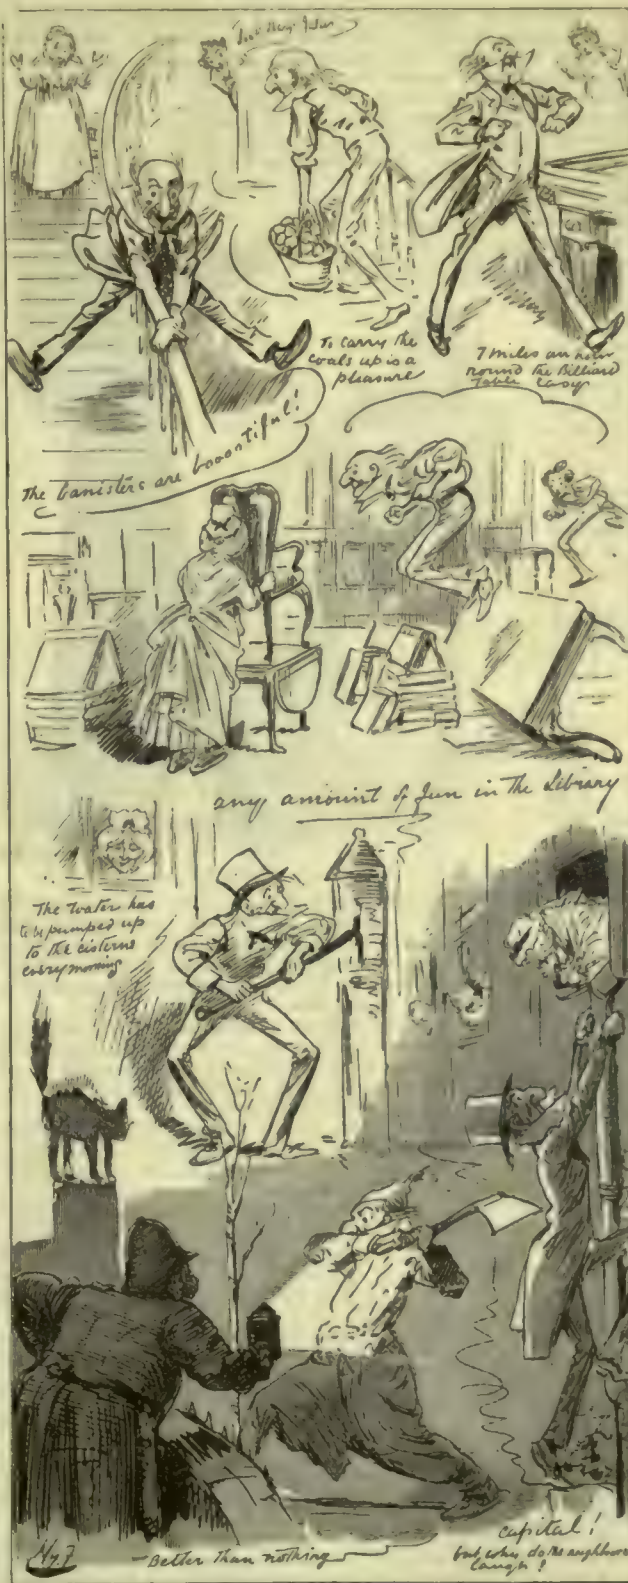 To carry the
coals up is a
pleasure
7 miles an hour
round the Billiard
Table easy
The banisters are booontiful!
any amount of fun in the Library
The water has
to be pumped up
to the cisterns
every morning
Better than nothing
capital!
but why do the neighbours
laugh!